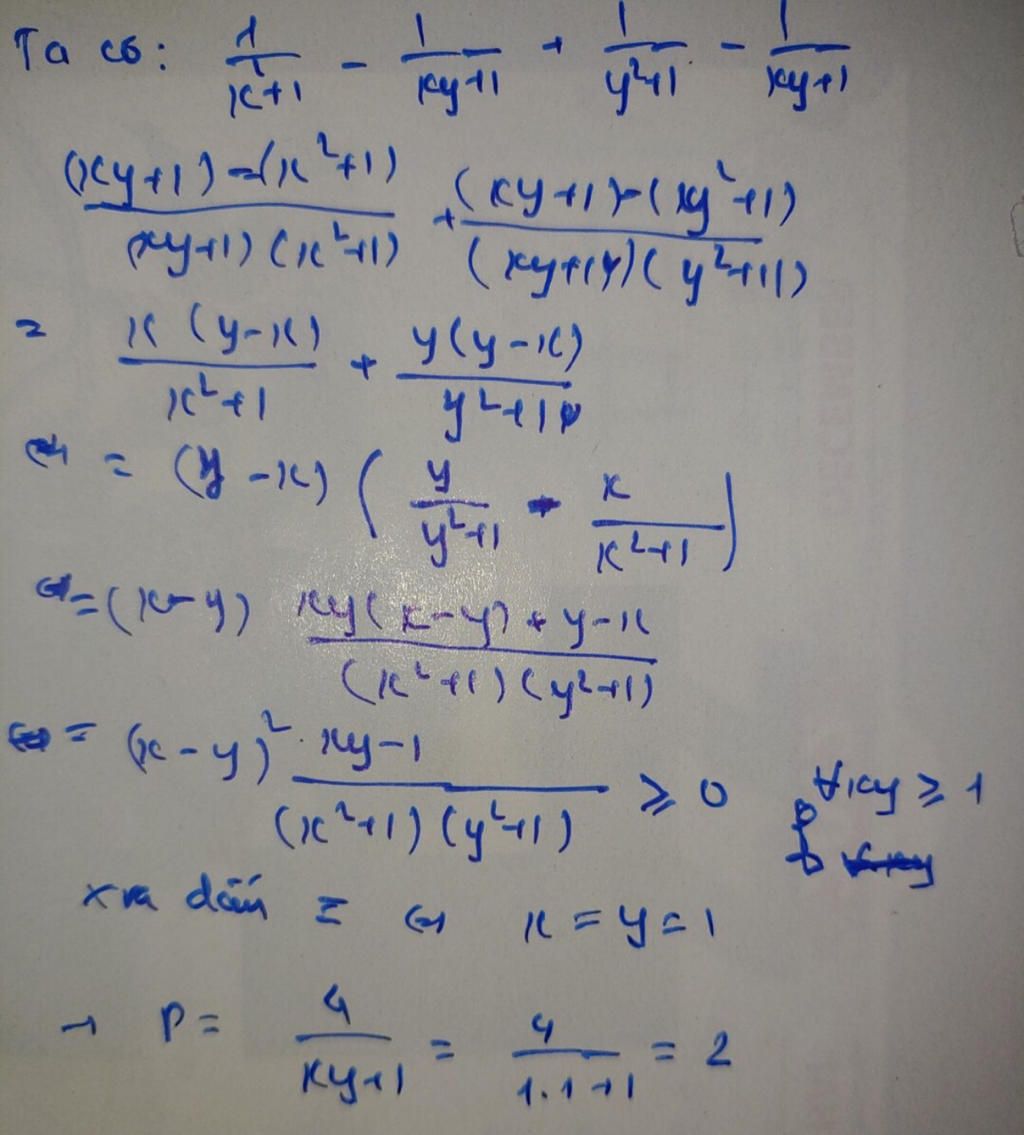 Ta có: 1/(x²+1) - 1/(xy+1) + 1/(y²+1) - 1/(xy+1)
((xy+1)-(x²+1))/((xy+1)(x²+1)) + ((xy+1)-(xy²+1))/((xy+1)(y²+1))
= x(y-x)/(x²+1) + y(y-x)/(y²+1)
= (y-x)(y/(y²+1) - x/(x²+1))
= (x-y) (xy(x-y)+y-x)/((x²+1)(y²+1))
= (x-y)² · (xy-1)/((x²+1)(y²+1)) ≥ 0 ∀xy ≥ 1
xra dấu = ⇔ x = y = 1
→ P = 4/(xy+1) = 4/(1.1+1) = 2